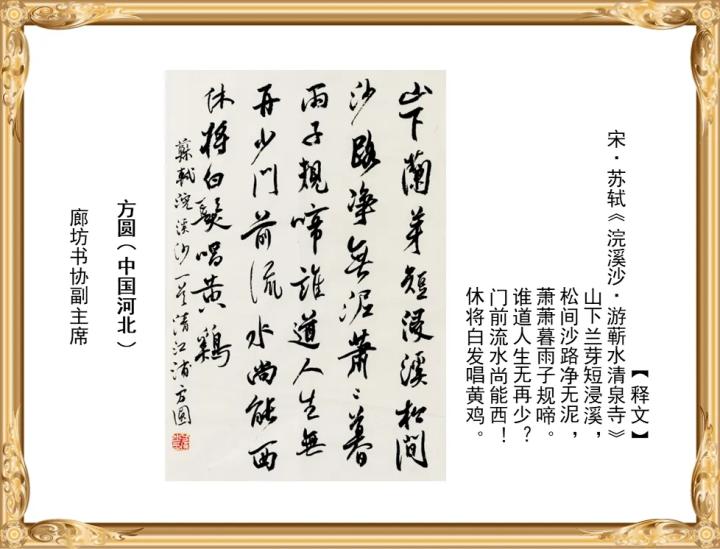 【释文】
宋·苏轼《浣溪沙·游蕲水清泉寺》
山下兰芽短浸溪，
松间沙路净无泥，
萧萧暮雨子规啼。
谁道人生无再少？
门前流水尚能西！
休将白发唱黄鸡。
山下蘭芽短浸溪松間
沙路淨無泥蕭〻暮
雨子規啼誰道人生無
再少門前流水尚能西
休將白髮唱黄鷄
蘇軾浣溪沙一首清江浦方圓
方圆（中国河北）
廊坊书协副主席